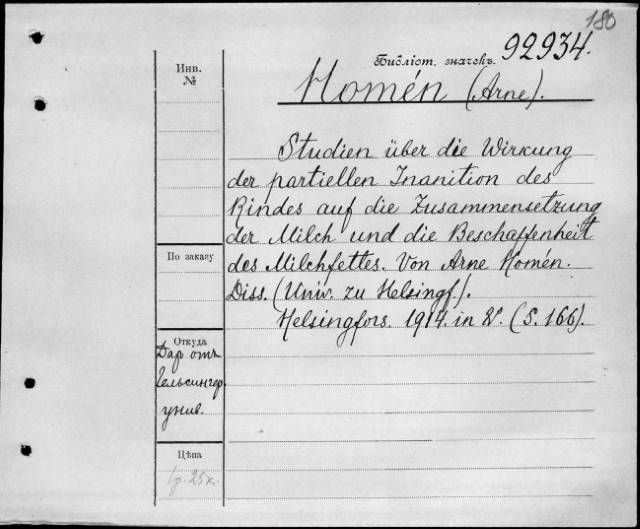 180
Библіот. значекъ 92934.
Инв.
№
Homén (Arne).
Studien über die Wirkung
der partiellen Inanition des
Rindes auf die Zusammensetzung
der Milch und die Beschaffenheit
des Milchfettes. Von Arne Homén.
Diss. (Univ. zu Helsingf.).
Helsingfors. 1914. in 8°. (S. 166).
По заказу
Откуда
Даръ отъ
Гельсингфор.
унив.
Цѣна
1р. 25к.